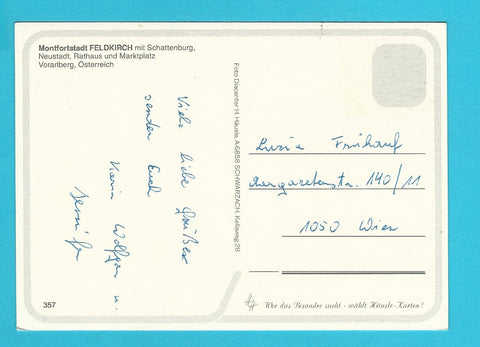 Montfortstadt FELDKIRCH mit Schattenburg,
Neustadt, Rathaus und Marktplatz
Vorarlberg, Österreich
Viele liebe Grüße
senden Euch
Karin Wolfgang u.
Jennifer
Foto Diacenter H. Häusle, A-6858 SCHWARZACH, Kellaweg 28
Luzia
Margaretenstr. 140/11
1050 Wien
357
Wer das Besondere sucht - wählt Häusle-Karten!